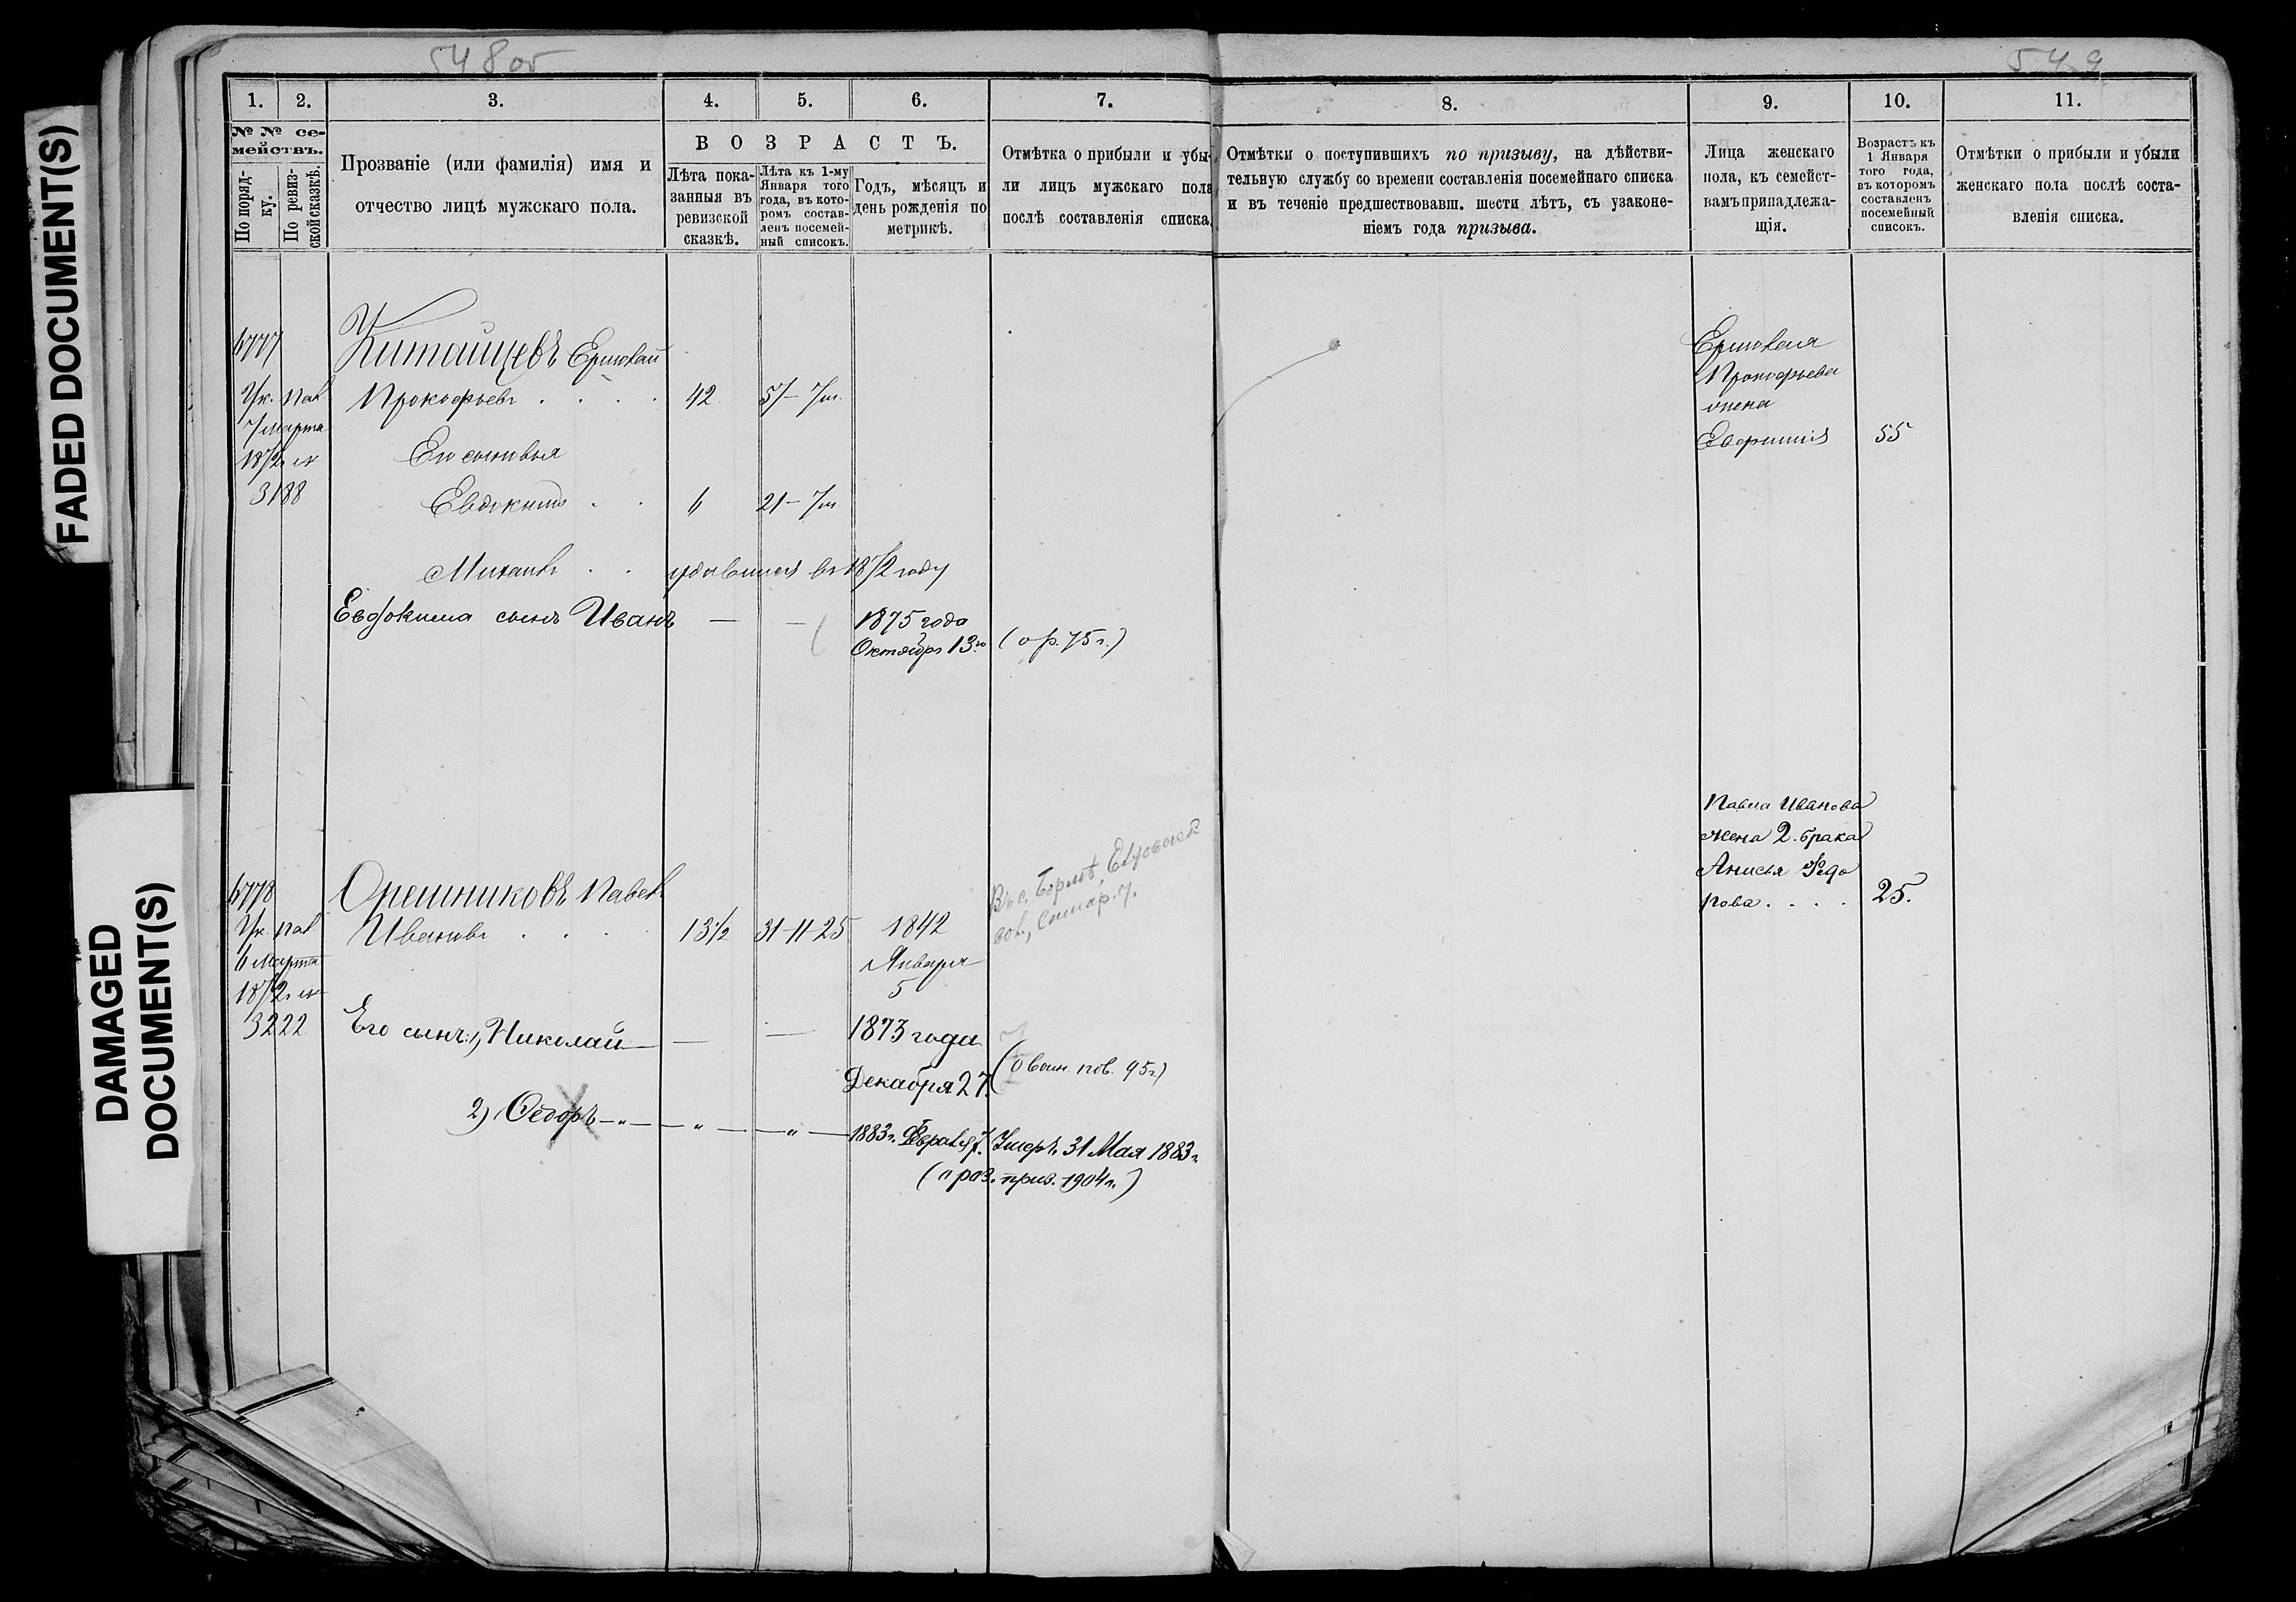 548 об
549
FADED DOCUMENT(S)
DAMAGED
DOCUMENT(S)
1. 2. 3. 4. 5. 6. 7. 8. 9. 10. 11.
№ № се-
мействъ.
По поряд-
ку.
По ревиз-
ской сказкѣ.
Прозваніе (или фамилія) имя и
отчество лицѣ мужскаго пола.
ВОЗРАСТЪ.
Лѣта пока-
занныя въ
ревизской
сказкѣ.
Лѣта къ 1-му
Января того
года, въ кото-
ромъ состав-
ленъ посемей-
ный списокъ.
Годъ, мѣсяцъ и
день рожденія по
метрикѣ.
Отмѣтка о прибыли и убы-
ли лицъ мужскаго пола
послѣ составленія списка.
Отмѣтки о поступившихъ по призыву, на дѣйстви-
тельную службу со времени составленія посемейнаго списка
и въ теченіе предшествовавш. шести лѣтъ, съ узаконе-
ніемъ года призыва.
Лица женскаго
пола, къ семейст-
вамъ принадлежа-
щія.
Возрастъ къ
1 Января
того года,
въ которомъ
составленъ
посемейный
списокъ.
Отмѣтки о прибыли и убыли
женскаго пола послѣ соста-
вленія списка.
6777
Ук. пал
7 марта
1872 г. №
3188
Китайцевъ Ермолай
Прокофьевъ . . . . 42 51 - 7 м.
Его сыновья
Евдокимъ . . 6 21 - 7 м
Михаилъ . . убавился въ 1872 году
Евдокима сынъ Иванъ — — 1875 года
Октября 13го (о р. 75 г.)
Ермолая
Прокофьева
жена
Евфимия 55
6778
Ук. пал
6 марта
1872 г. №
3222
Орешниковъ Павелъ
Ивановъ . . . . 13½ 31-11-25 1842
Января
5
Въ с. Бормѣ,
вол., Самар. у.
Его сынъ: 1) Николай — — — 1873 года
Декабря 27. (о воин. пов. 95 г.)
2) Ѳедоръ —„— —„— —„— 1883 г. Февраля 7. Умеръ 31 Мая 1883 г.
(приз. 1904 г.)
Павла Иванова
жена 2. брака
Анисья Федо
рова . . . . 25.